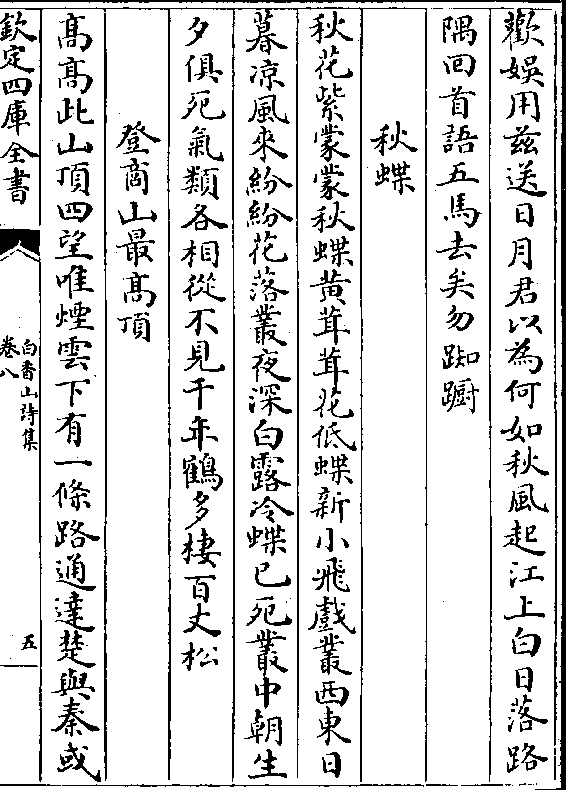 歡娱用兹送日月君以為何如秋風起江上白日落路
隅回首語五馬去矣勿踟蹰
秋蝶
秋花紫蒙蒙秋蝶黄茸茸花低蝶新小飛戲叢西東日
暮凉風來紛紛花落叢夜深白露冷蝶已死叢中朝生
夕俱死氣類各相從不見千年鶴多棲百丈松
登商山最髙頂
髙髙此山頂四望唯煙雲下有一條路通達楚與秦或
欽定四庫全書
白香山詩集
卷八
五